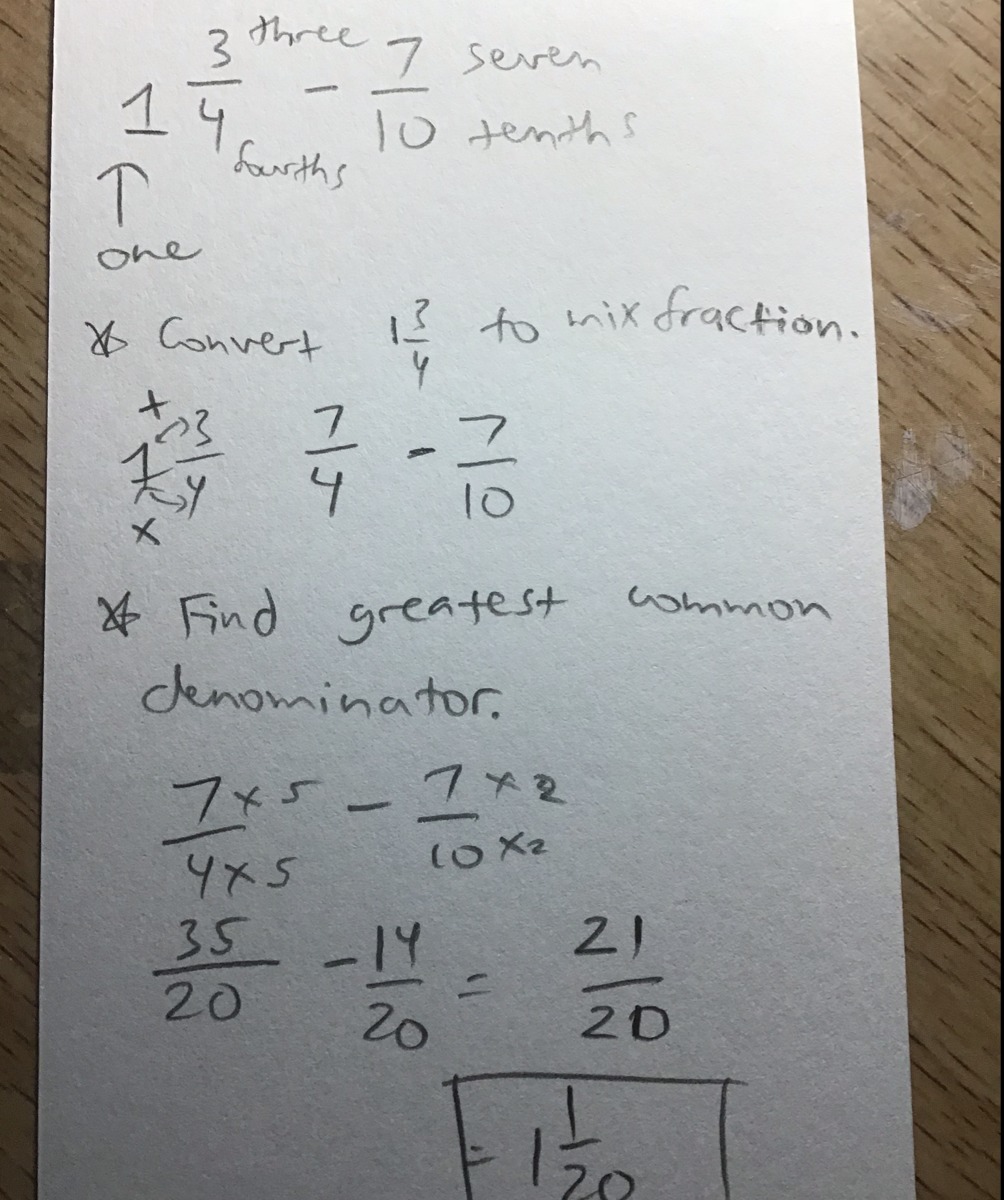 1 3/4 three fourths - 7/10 seven tenths
↑
one
* Convert 1 3/4 to mix fraction.
+
1 3/4 7/4 - 7/10
x
* Find greatest common
denominator.
7 x 5 / 4 x 5 - 7 x 2 / 10 x 2
35/20 - 14/20 = 21/20
= 1 1/20